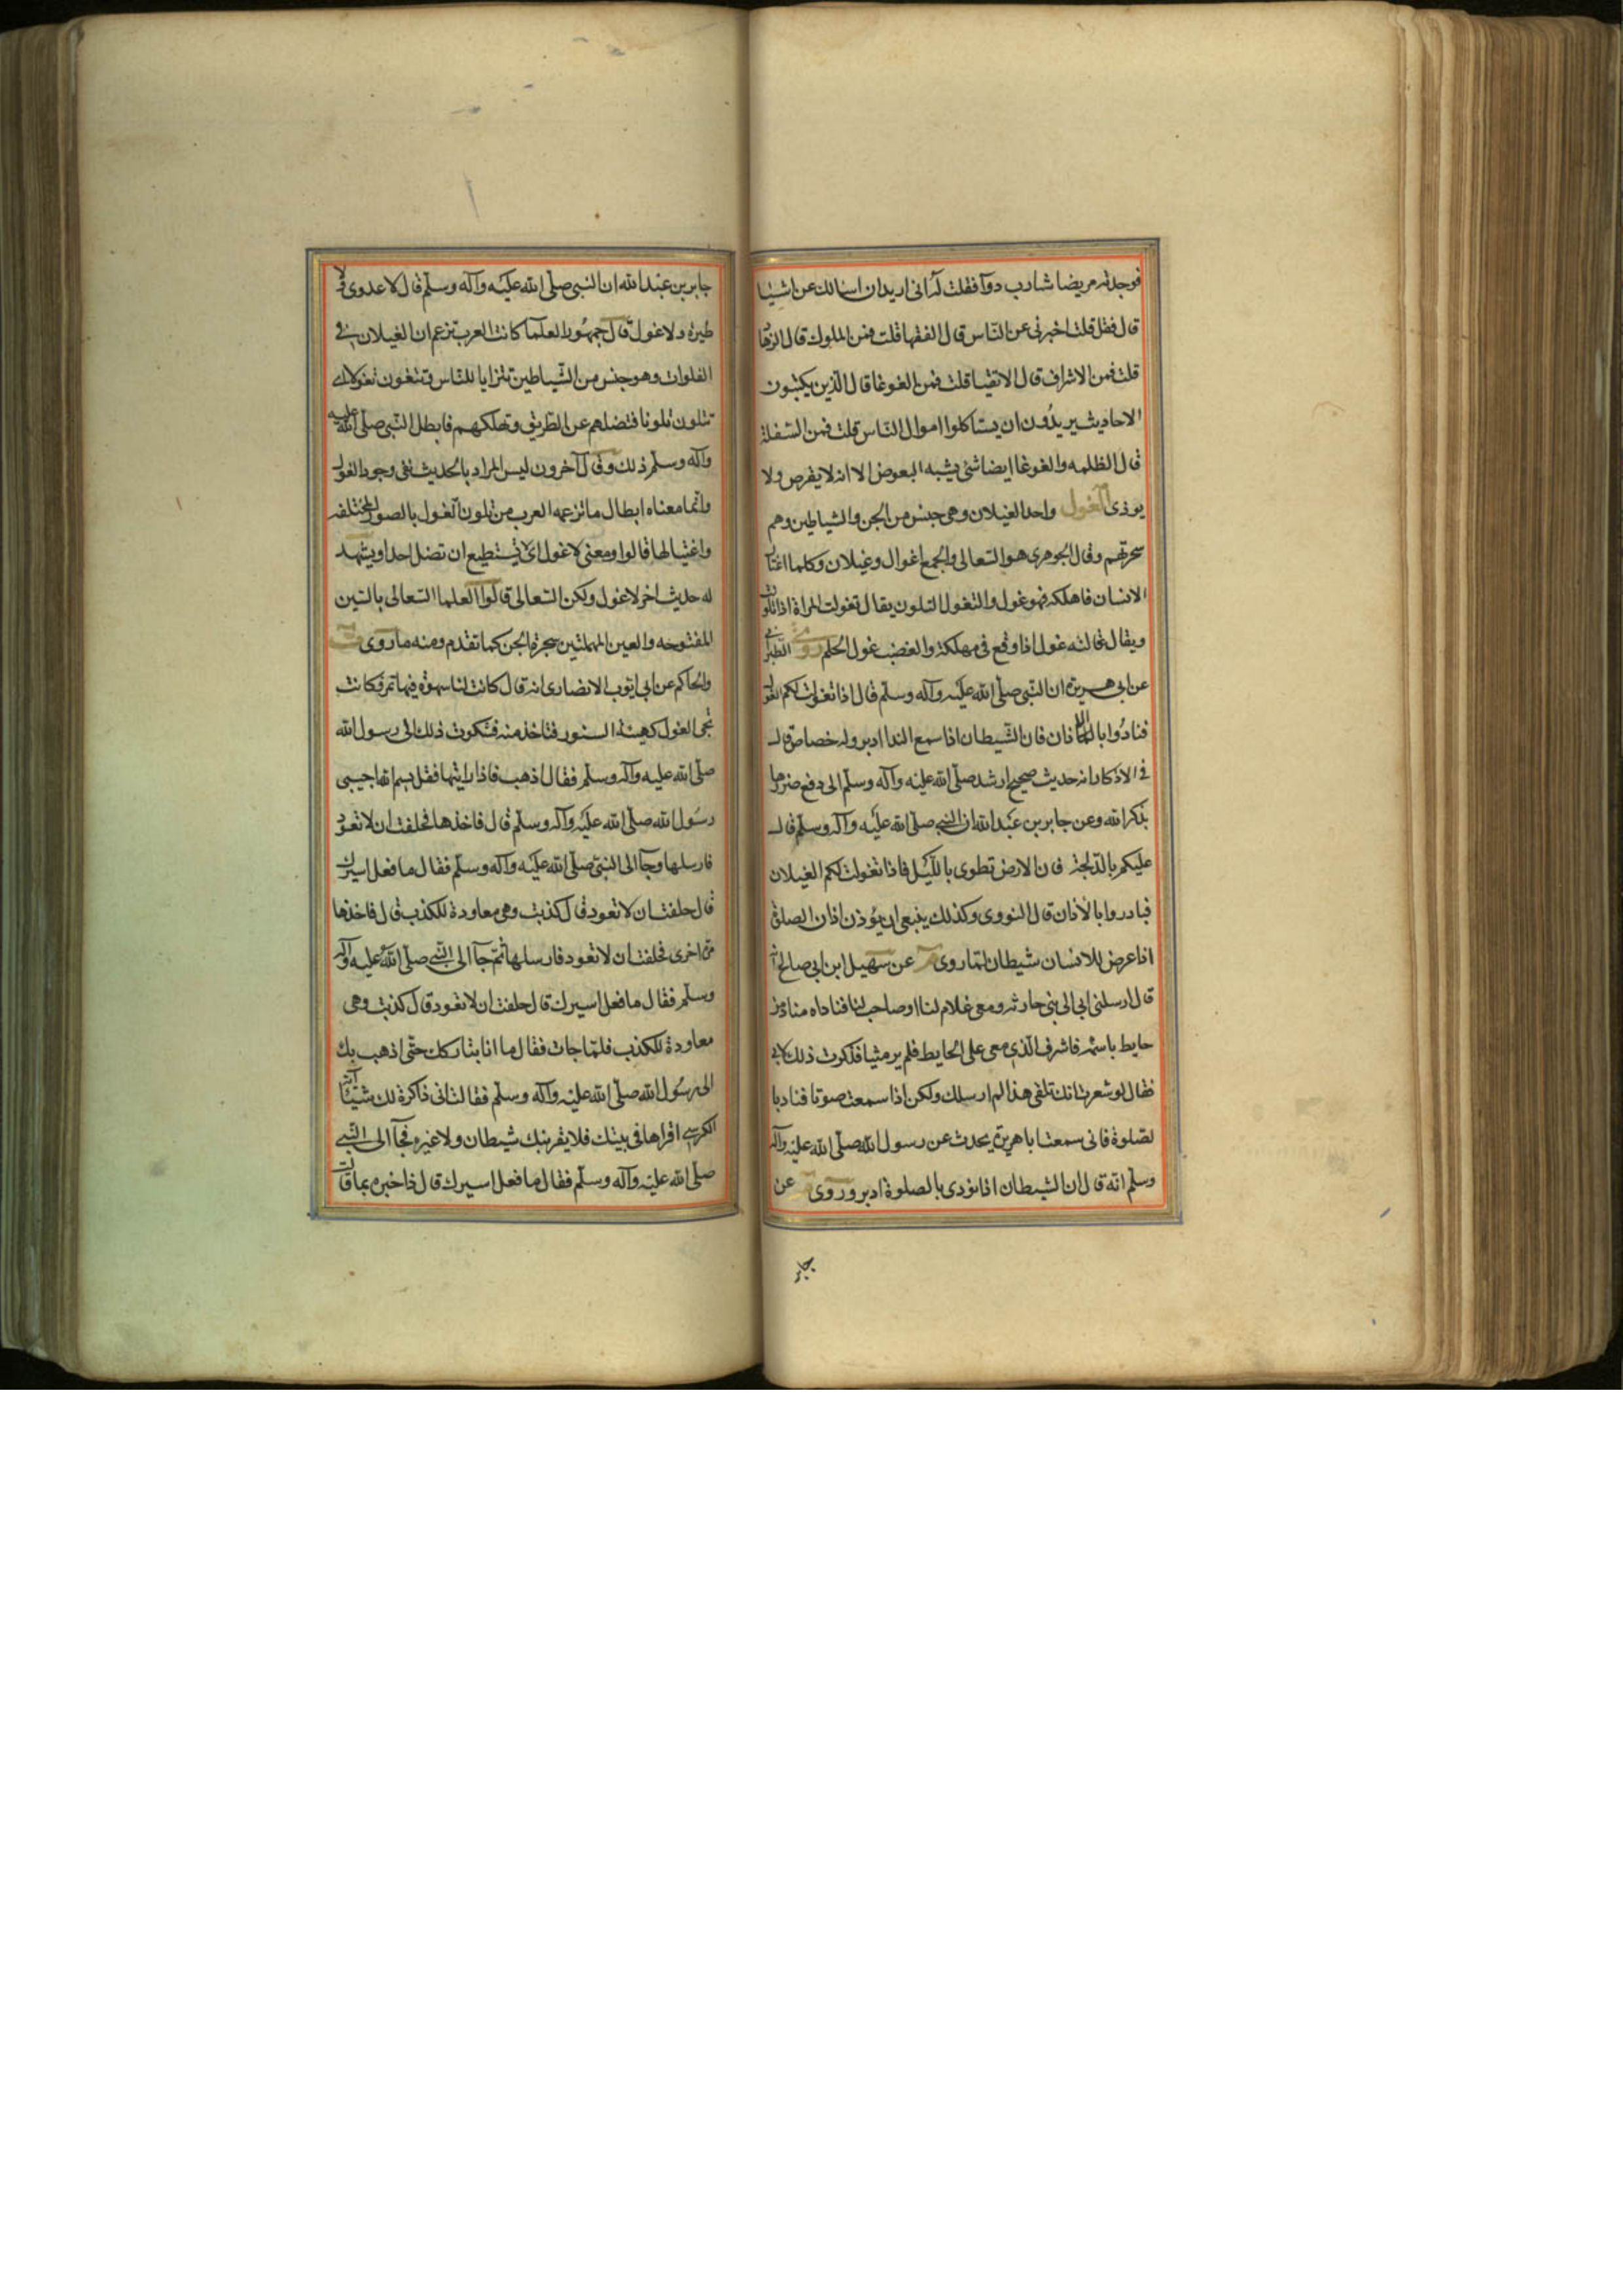 فوجدته مريضا شارب دوآ فقلت له انى اريد ان اسالك عن اشيا
قال فقل قلت اخبرنى عن النّاس قال الفقها قلت فمن الملوك قال الزهاد
قلت فمن الاشراف قال الاتقيا قلت فمن الغوغا قال الّذين يكتبون
الاحاديث يريدُون ان يستاكلوا اموال النّاس قلت فمن السّفلة
قال الظلمه والغوغا ايضا شئ يشبه البعوض الا انه لا يقرص ولا
يوذى الغول واحد الغيلان وهى جنس من الجن والشياطين وهم
سحرتهم وقال الجوهرى هو السّعالى والجمع اغوال وغيلان وكلما اغتال
الانسان فاهلكه فهو غول والتغول التلون يقال تغولت المراة اذا تلونت
ويقال غالته غول اذا وقع فى مهلكة والغضب غول الحلم روى الطبرانى
عن ابى هريرة ان النّبى صلّى الله عليْه وآله وسلّم قال اذا تغولت لكم الغول
فنادُوا بالاذان فان الشّيطان اذا سمع الندا ادبر وله خصاص قال
فى الاذكار انه حديث صحيح ارشد صلّى الله عليْه وآله وسلّم الى دفع ضررها
بذكر الله وعن جابر بن عَبد الله ان النبى صلّى الله عليْه وآله وسلّم قال
عليكم بالدّلجة فان الارض تطوى بالليْل فاذا تغولت لكم الغيلان
فبادروا بالاذان قال النووى وكذلك ينبغى ان يُوذن اذان الصلوة
اذا عرض للانسان شيطان لما روى عن سهيل ابن ابى صالح انه
قال ارسلنى ابى الى بنى حارثه ومعى غلام لنا او صاحب لنا فناداه مناد من
حايط باسمه فاشرف الّذى معى على الحايط فلم ير شيا فذكرت ذلك لابى
فقال لو شعرت انك تلقى هذا لم ارسلك ولكن اذا سمعت صوتا فناد با
لصلوة فانى سمعت ابا هريرة يحدث عن رسول الله صلّى الله عليْه وآله
وسلّم انّه قال ان الشيطان اذا نودى بالصلوة ادبر وروى عن
جابر
جابر بن عبْد الله ان النّبى صلّى الله عليْه وآله وسلّم قال لا عدوى ولا
طيرة ولا غول قال جمهُور العلما كانت العرب تزعم ان الغيلان فى
الفلوات وهو جنس من الشّياطين تتزايا للنّاس فتتغول تغولا اى
تتلون تلونا فتضلهم عن الطّريق وتهلكهم فابطل النّبى صلّى الله عليه
وآله وسلّم ذلك وقال آخرون ليس المراد بالحديث نفى وجود الغول
وانّما معناه ابطال ما تزعمه العرب من تلون الغول بالصور المختلفه
واغتيالها قالوا ومعنى لا غول اى لا تستطيع ان تضل احدا ويشهد
له حديث اخر لا غول ولكن السّعالى قالوا العلما السّعالى بالسّين
المفتوحه والعين المهملتين سحرة الجن كما تقدم ومنه ما روى ت
والحاكم عن ابى ايّوب الانصارى انه قال كانت لنا سهوة فيها تمر فكانت
تجى الغول كهيئة السنور فتاخذ منه فشكوت ذلك الى رسول الله
صلّى الله عليه وآله وسلّم فقال اذهب فاذا رايتها فقل بسم الله اجيبى
رسُول الله صلّى الله عليْه وآله وسلّم قال فاخذها فحلفت ان لا تعود
فارسلها وجآ الى النبىّ صلّى الله عليْه وآله وسلّم فقال ما فعل اسيرك
قال حلفت ان لا تعود قال كذبت وهى معاودة للكذب قال فاخذها
مرة اخرى فحلفت ان لا تعود فارسلها ثم جآ الى النّبى صلّى الله عليه وآله
وسلّم فقال ما فعل اسيرك قال حلفت ان لا تعود قال كذبت وهى
معاودة للكذب فلمّا جات فقال ما انا بتاركك حتّى اذهب بك
الى رسُول الله صلّى الله عليْه وآله وسلّم فقالت انى ذاكرة لك شيئا آية
الكرسى اقراها فى بيتك فلا يقربنك شيطان ولا غيره فجآ الى النّبى
صلّى الله عليْه وآله وسلّم فقال ما فعل اسيرك قال فاخبره بما قالت